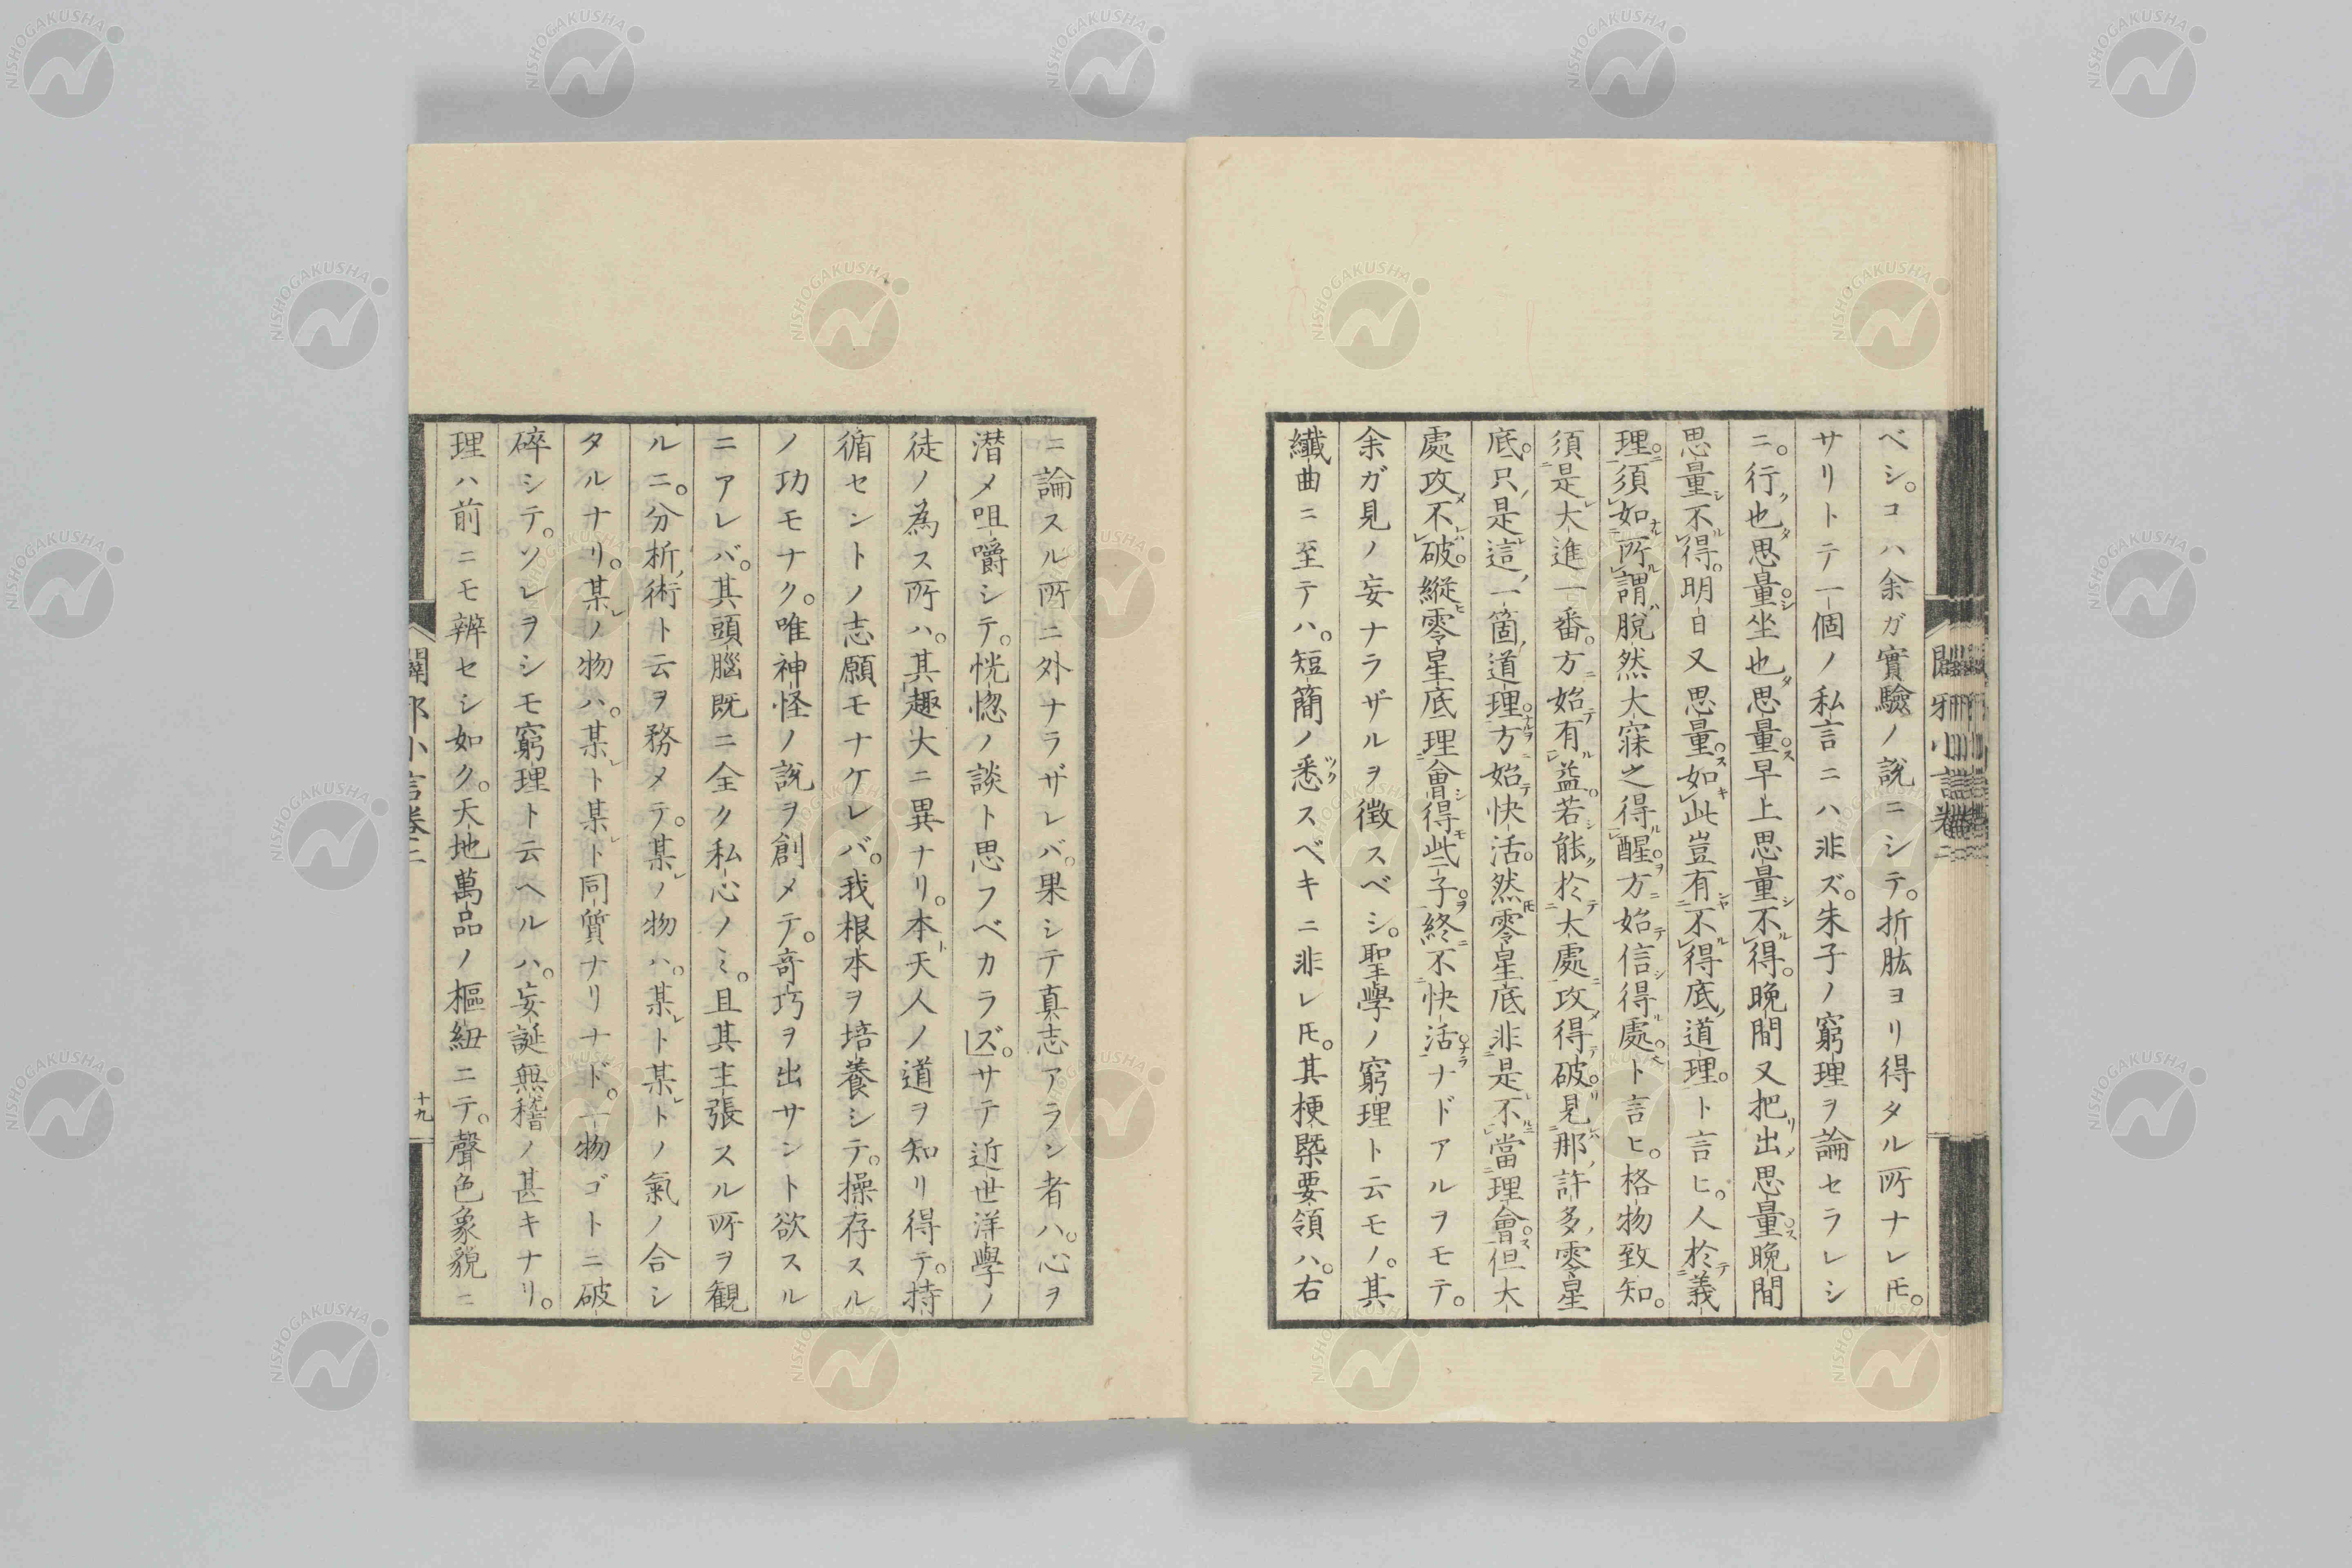 ベシ。コハ余ガ實驗ノ説ニシテ。折肱ヨリ得タル所ナレ𪜈。
サリトテ一個ノ私言ニハ非ズ。朱子ノ窮理ヲ論セラレシ
ニ。行也思量。坐也思量。早上思量不得。晩間又把出思量。晩間
思量不得。明日又思量。如此豈有不得底道理。ト言ヒ。人於義
理。須如所謂脱然大寐之得醒。方始信得處。ト言ヒ。格物致知。
須是大進一番。方始有益。若能於大處攻得破。見那許多零星
底。只是這一箇道理。方始快活。然零星底非是不當理會。但大
處攻不破。縦零星底理會得些子。終不快活。ナドアルヲモテ。
余ガ見ノ妄ナラザルヲ徴スベシ。聖學ノ窮理ト云モノ。其
纎曲ニ至テハ。短簡ノ悉スベキニ非レ𪜈。其梗槩要領ハ。右
ニ論スル所ニ外ナラザレバ。果シテ真志アラン者ハ。心ヲ
潜メ咀嚼シテ。恍惚ノ談ト思フベカラズ。サテ近世洋學ノ
徒ノ為ス所ハ。其趣大ニ異ナリ。本天人ノ道ヲ知リ得テ。持
循セントノ志願モナケレバ。我根本ヲ培養シテ。操存スル
ノ功モナク。唯神怪ノ説ヲ創メテ。奇巧ヲ出サント欲スル
ニアレバ。其頭腦既ニ全ク私心ノミ。且其主張スル所ヲ観
ルニ。分析術ト云ヲ務メテ。某ノ物ハ。某ト某トノ氣ノ合シ
タルナリ。某ノ物ハ。某ト某ト同質ナリナド。一物ゴトニ破
碎シテ。ソレヲシモ窮理ト云ヘルハ。妄誕無稽ノ甚キナリ。
理ハ前ニモ辨セシ如ク。天地萬品ノ樞紐ニテ。聲色象貌ニ
闢邪小言巻二
十九
NISHOGAKUSHA